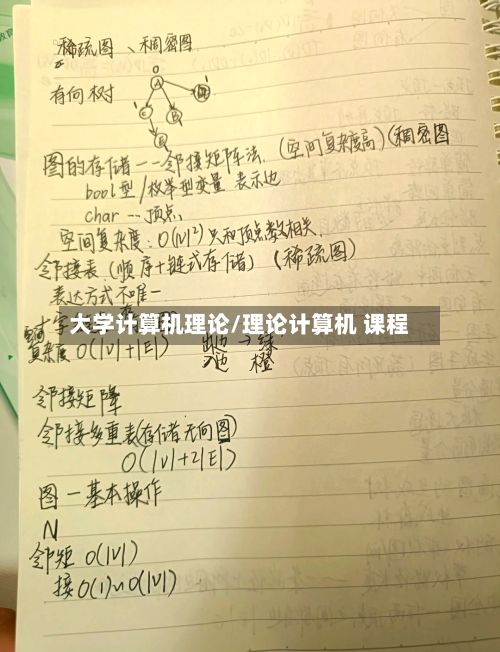 稀疏图、稠密图
有向树
0
A
1
C
B
E
图的存储——邻接矩阵法.(空间复杂度高)(稠密图
bool型/枚举型变量 表示边
char -- 顶点,
空间复杂度:O(|V|²)只和顶点数相关,
邻接表(顺序+链式存储)(稀疏图)
表达方式不唯一
大学计算机理论/理论计算机 课程
复杂度 O(|V|+|E|) 出边→绿
入边 橙
邻接矩阵
邻接多重表(存储无向图)
O(|V|+2|E|)
图—基本操作
N
邻矩 O(|V|)
接 O(1)~O(|V|)